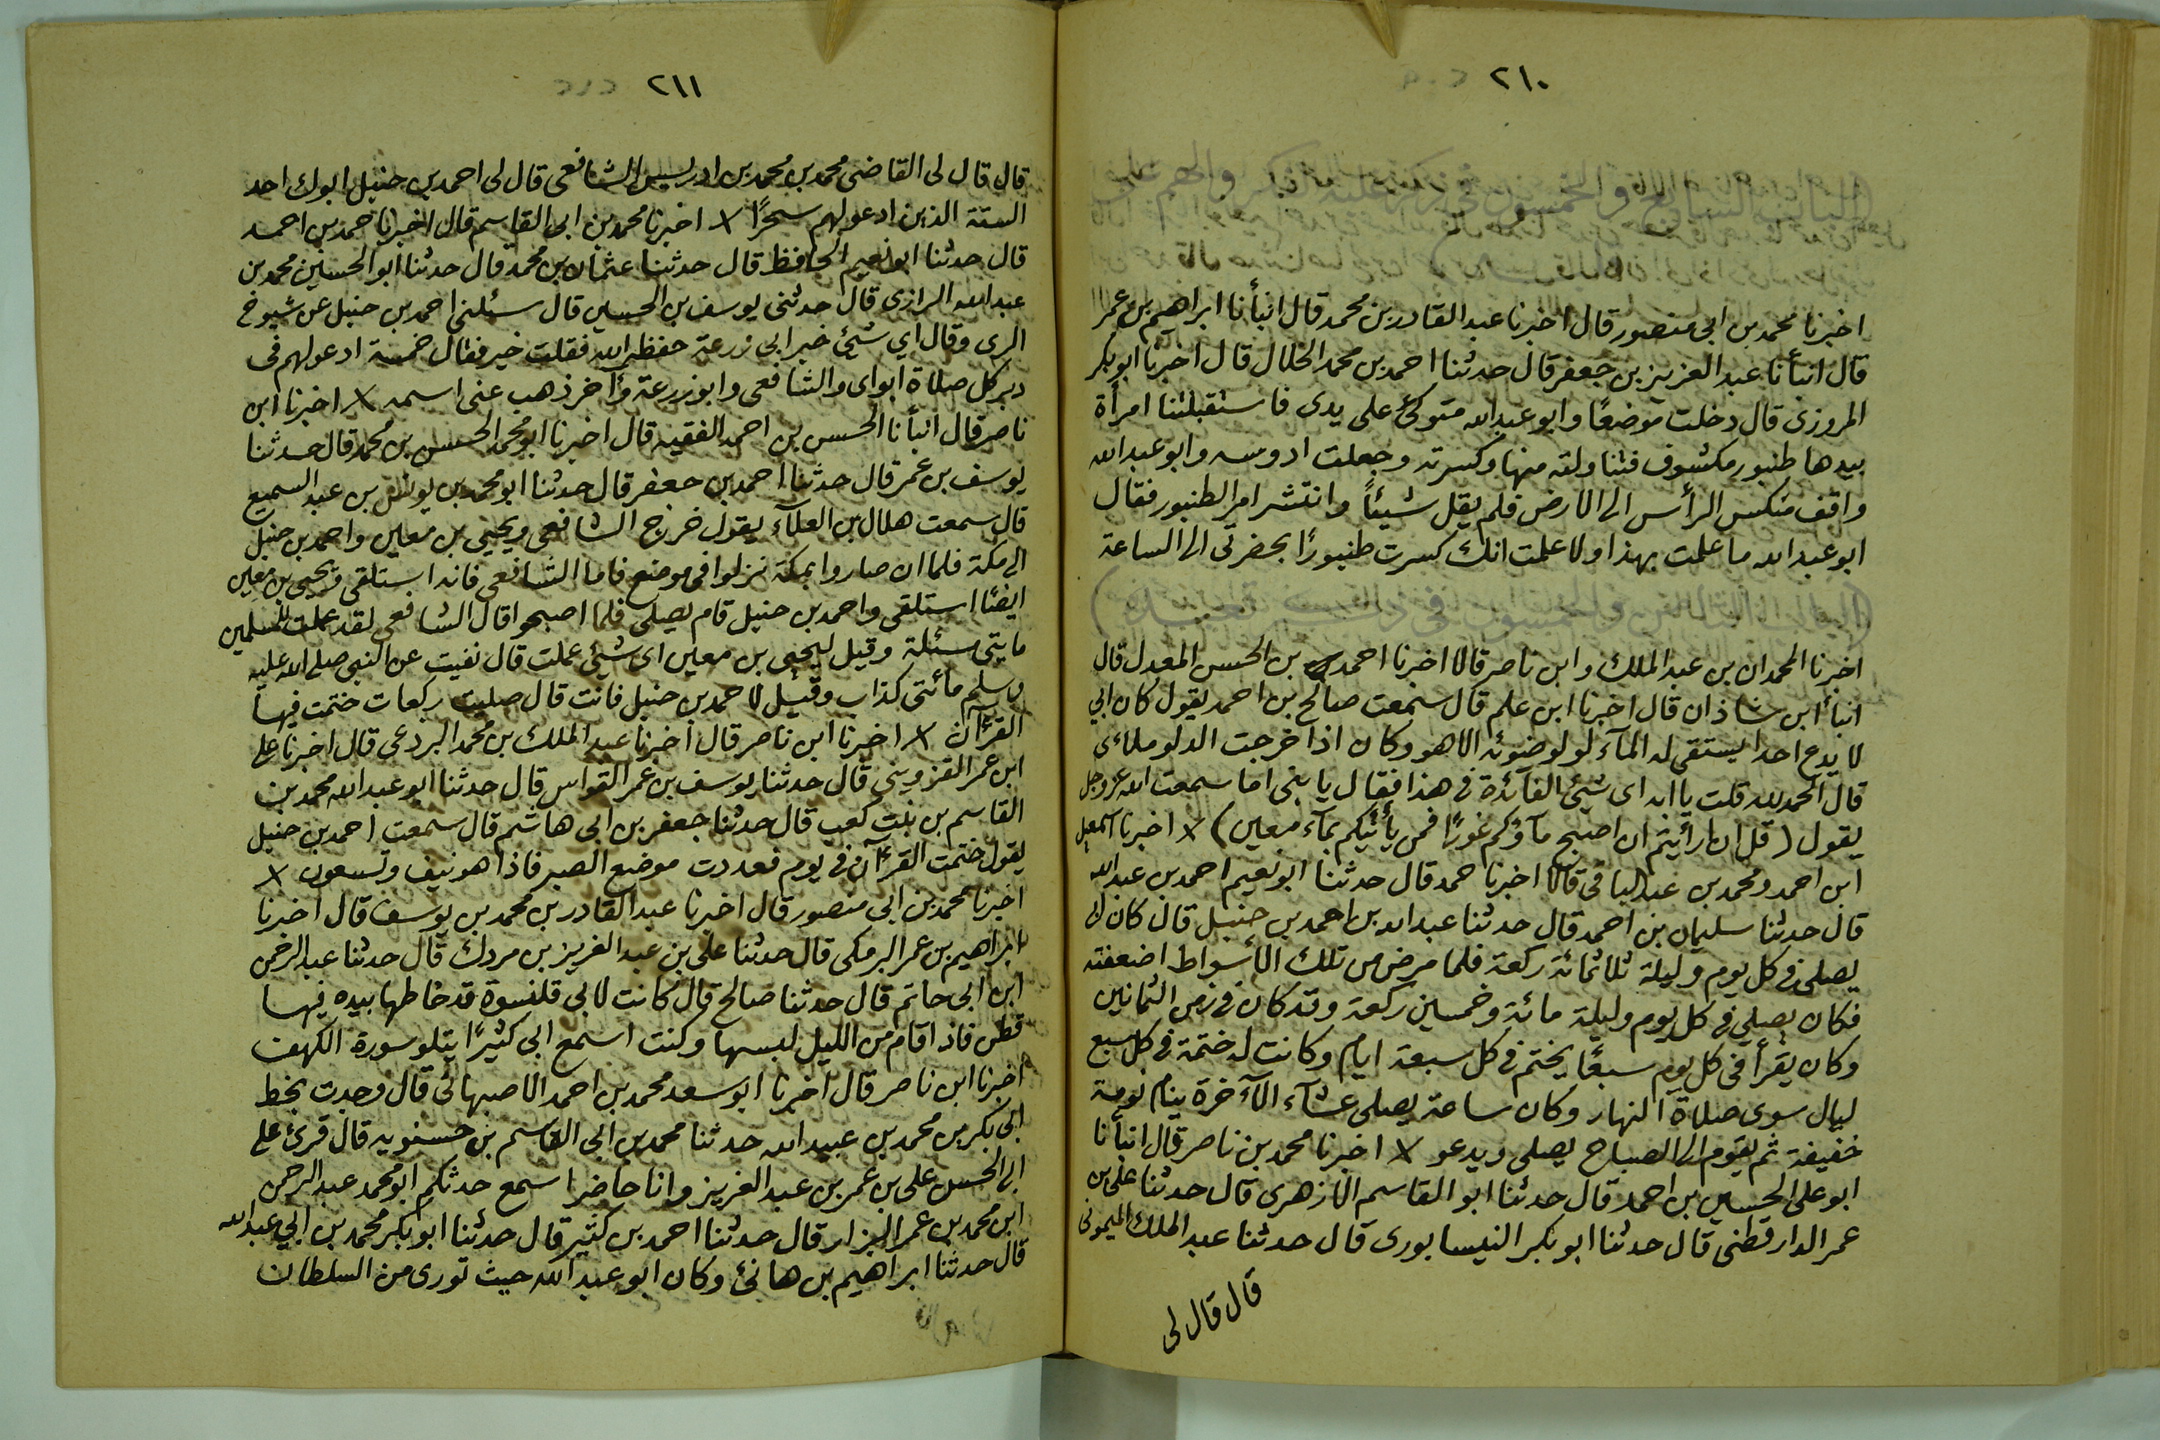 ٢١٠
اخبرنا محمد بن ابى منصور قال اخبرنا عبد القادر بن محمد قال انبأنا ابراهيم بن عمر
قال انبأنا عبد العزيز بن جعفر قال حدثنا احمد بن محمد الخلال قال اخبرنا ابوبكر
المروزى قال دخلت موضعًا وابو عبد الله متوكئ على يدى فاستقبلتنا امرأة
بيدها طنبور مكشوف فتناولته منها وكسرته وجعلت ادوسه وابو عبد الله
واقف منكس الرأس الى الارض فلم يقل شيئاً وانتشر امر الطنبور فقال
ابو عبد الله ما علمت بهذا ولا علمت انك كسرت طنبورًا بحضرتى الى الساعة
(الباب الثامن والخمسون فى ذكر تعبده)
اخبرنا المحمدان بن عبد الملك وابن ناصر قالا اخبرنا احمد بن الحسن المعدل قال
انبأ ابن شاذان قال اخبرنا ابن علم قال سمعت صالح بن احمد يقول كان ابي
لا يدع احدا يستقى له المآء لولوضوئه الا هو وكان اذا خرجت الدلو ملاءى
قال الحمد لله قلت يا ابه اى شيئ الفآئدة فى هذا فقال يا بنى اما سمعت الله عز وجل
يقول (قل ان ارأيتم ان اصبح مآؤكم غورًا فمن يأتيكم بمآء معين) × اخبرنا اسمعيل
ابن احمد ومحمد بن عبد الباقى قالا اخبرنا حمد قال حدثنا ابو نعيم احمد بن عبد الله
قال حدثنا سليمان بن احمد قال حدثنا عبد الله بن احمد بن حنبل قال كان ابى
يصلى فى كل يوم وليلة ثلاثمائة ركعة فلما مرض من تلك الأسواط اضعفته
فكان يصلي فى كل يوم وليلة مائة وخمسين ركعة وقد كان فى زمن الثمانين
وكان يقرأ فى كل يوم سبعًا يختم فى كل سبعة ايام وكانت له ختمة فى كل سبع
ليال سوى صلاة النهار وكان ساعة يصلى عشآء الآخرة ينام نومة
خفيفة ثم يقوم الى الصباح يصلى ويدعو × اخبرنا محمد بن ناصر قال انبأنا
ابو على الحسين بن احمد قال حدثنا ابو القاسم الازهرى قال حدثنا على بن
عمر الدارقطنى قال حدثنا ابوبكر النيسابورى قال حدثنا عبد الملك الميمونى
قال قال لى
٢١١
قال قال لى القاضى محمد بن محمد بن ادريس الشافعى قال لى احمد بن حنبل ابوك احد
الستة الذين ادعو لهم سحرًا × اخبرنا محمد بن ابى القاسم قال اخبرنا حمد بن احمد
قال حدثنا ابو نعيم الحافظ قال حدثنا عثمان بن محمد قال حدثنا ابو الحسين محمد بن
عبد الله الرازى قال حدثنى يوسف بن الحسين قال سئلنى احمد بن حنبل عن شيوخ
الرى وقال اي شئ خبر ابى زرعة حفظه الله فقلت خير فقال خمسة ادعو لهم فى
دبر كل صلاة ابواى والشافعى وابو زرعة وآخر ذهب عنى اسمه × اخبرنا ابن
ناصر قال انبأنا الحسن بن احمد الفقيه قال اخبرنا ابو محمد الحسن بن محمد قال حدثنا
يوسف بن عمر قال حدثنا احمد بن جعفر قال حدثنا ابو محمد بن يونس بن عبد السميع
قال سمعت هلال بن العلآء يقول خرج الشافعى ويحيى بن معين واحمد بن حنبل
الى مكة فلما ان صاروا بمكة نزلوا فى موضع فاما الشافعى فانه استلقى ويحيى بن معين
ايضًا استلقى واحمد بن حنبل قام يصلى فلما اصبحوا قال الشافعى لقد عملت للمسلمين
مايتى سئلة وقيل ليحيى بن معين اى شئ عملت قال نفيت عن النبى صلى الله عليه
وسلم مائتى كذاب وقيل لاحمد بن حنبل فانت قال صليت ركعات ختمت فيها
القرآن × اخبرنا ابن ناصر قال اخبرنا عبد الملك بن محمد البردعى قال اخبرنا على
ابن عمر القزوينى قال حدثنا يوسف بن عمر القواس قال حدثنا ابو عبد الله محمد بن
القاسم بن بنت كعب قال حدثنا جعفر بن ابى هاشم قال سمعت احمد بن حنبل
يقول ختمت القرآن فى يوم فعددت موضع الصبر فاذا هو نيف وتسعون ×
اخبرنا محمد بن ابى منصور قال اخبرنا عبد القادر بن محمد بن يوسف قال اخبرنا
ابراهيم بن عمر البرمكى قال حدثنا على بن عبد العزيز بن مردك قال حدثنا عبد الرحمن
ابن ابى حاتم قال حدثنا صالح قال كانت لابى قلنسوة قد خاطها بيده فيها
قطن فاذا قام من الليل لبسها وكنت اسمع ابى كثيرًا يتلو سورة الكهف
اخبرنا ابن ناصر قال اخبرنا ابو سعد محمد بن احمد الاصبهانى قال وجدت بخط
ابى بكر بن محمد بن عبيد الله حدثنا محمد بن ابى القاسم بن حسنويه قال قرئ على
ابى الحسن على بن عمر بن عبد العزيز وانا حاضر اسمع حدثكم ابو محمد عبد الرحمن
ابن محمد بن عمر البزار قال حدثنا احمد بن كثير قال حدثنا ابوبكر محمد بن ابي عبد الله
قال حدثنا ابراهيم بن هانئ وكان ابو عبد الله حيث تورى من السلطان